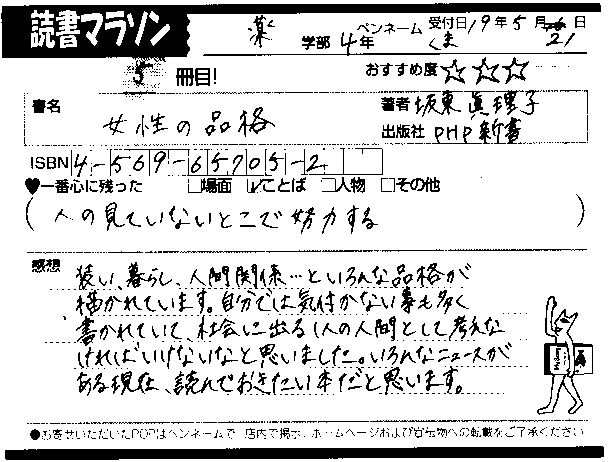 読書マラソン
薬 学部 4年 ペンネーム くま 受付日 19年 5月 21日
5 冊目! おすすめ度 ☆☆☆
書名 女性の品格
著者 坂東眞理子
出版社 PHP新書
ISBN 4-569-65705-2
♥一番心に残った □場面 ☑ことば □人物 □その他
(人の見ていないとこで努力する)
感想 装い、暮らし、人間関係…といろんな品格が
描かれています。自分では気付かない事も多く
書かれていて、社会に出る1人の人間として考えな
ければいけないなと思いました。いろんなニュースが
ある現在、読んでおきたい本だと思います。
●お寄せいただいたPOPはペンネームで 店内で掲示、ホームページおよび宣伝物への転載をご了承ください